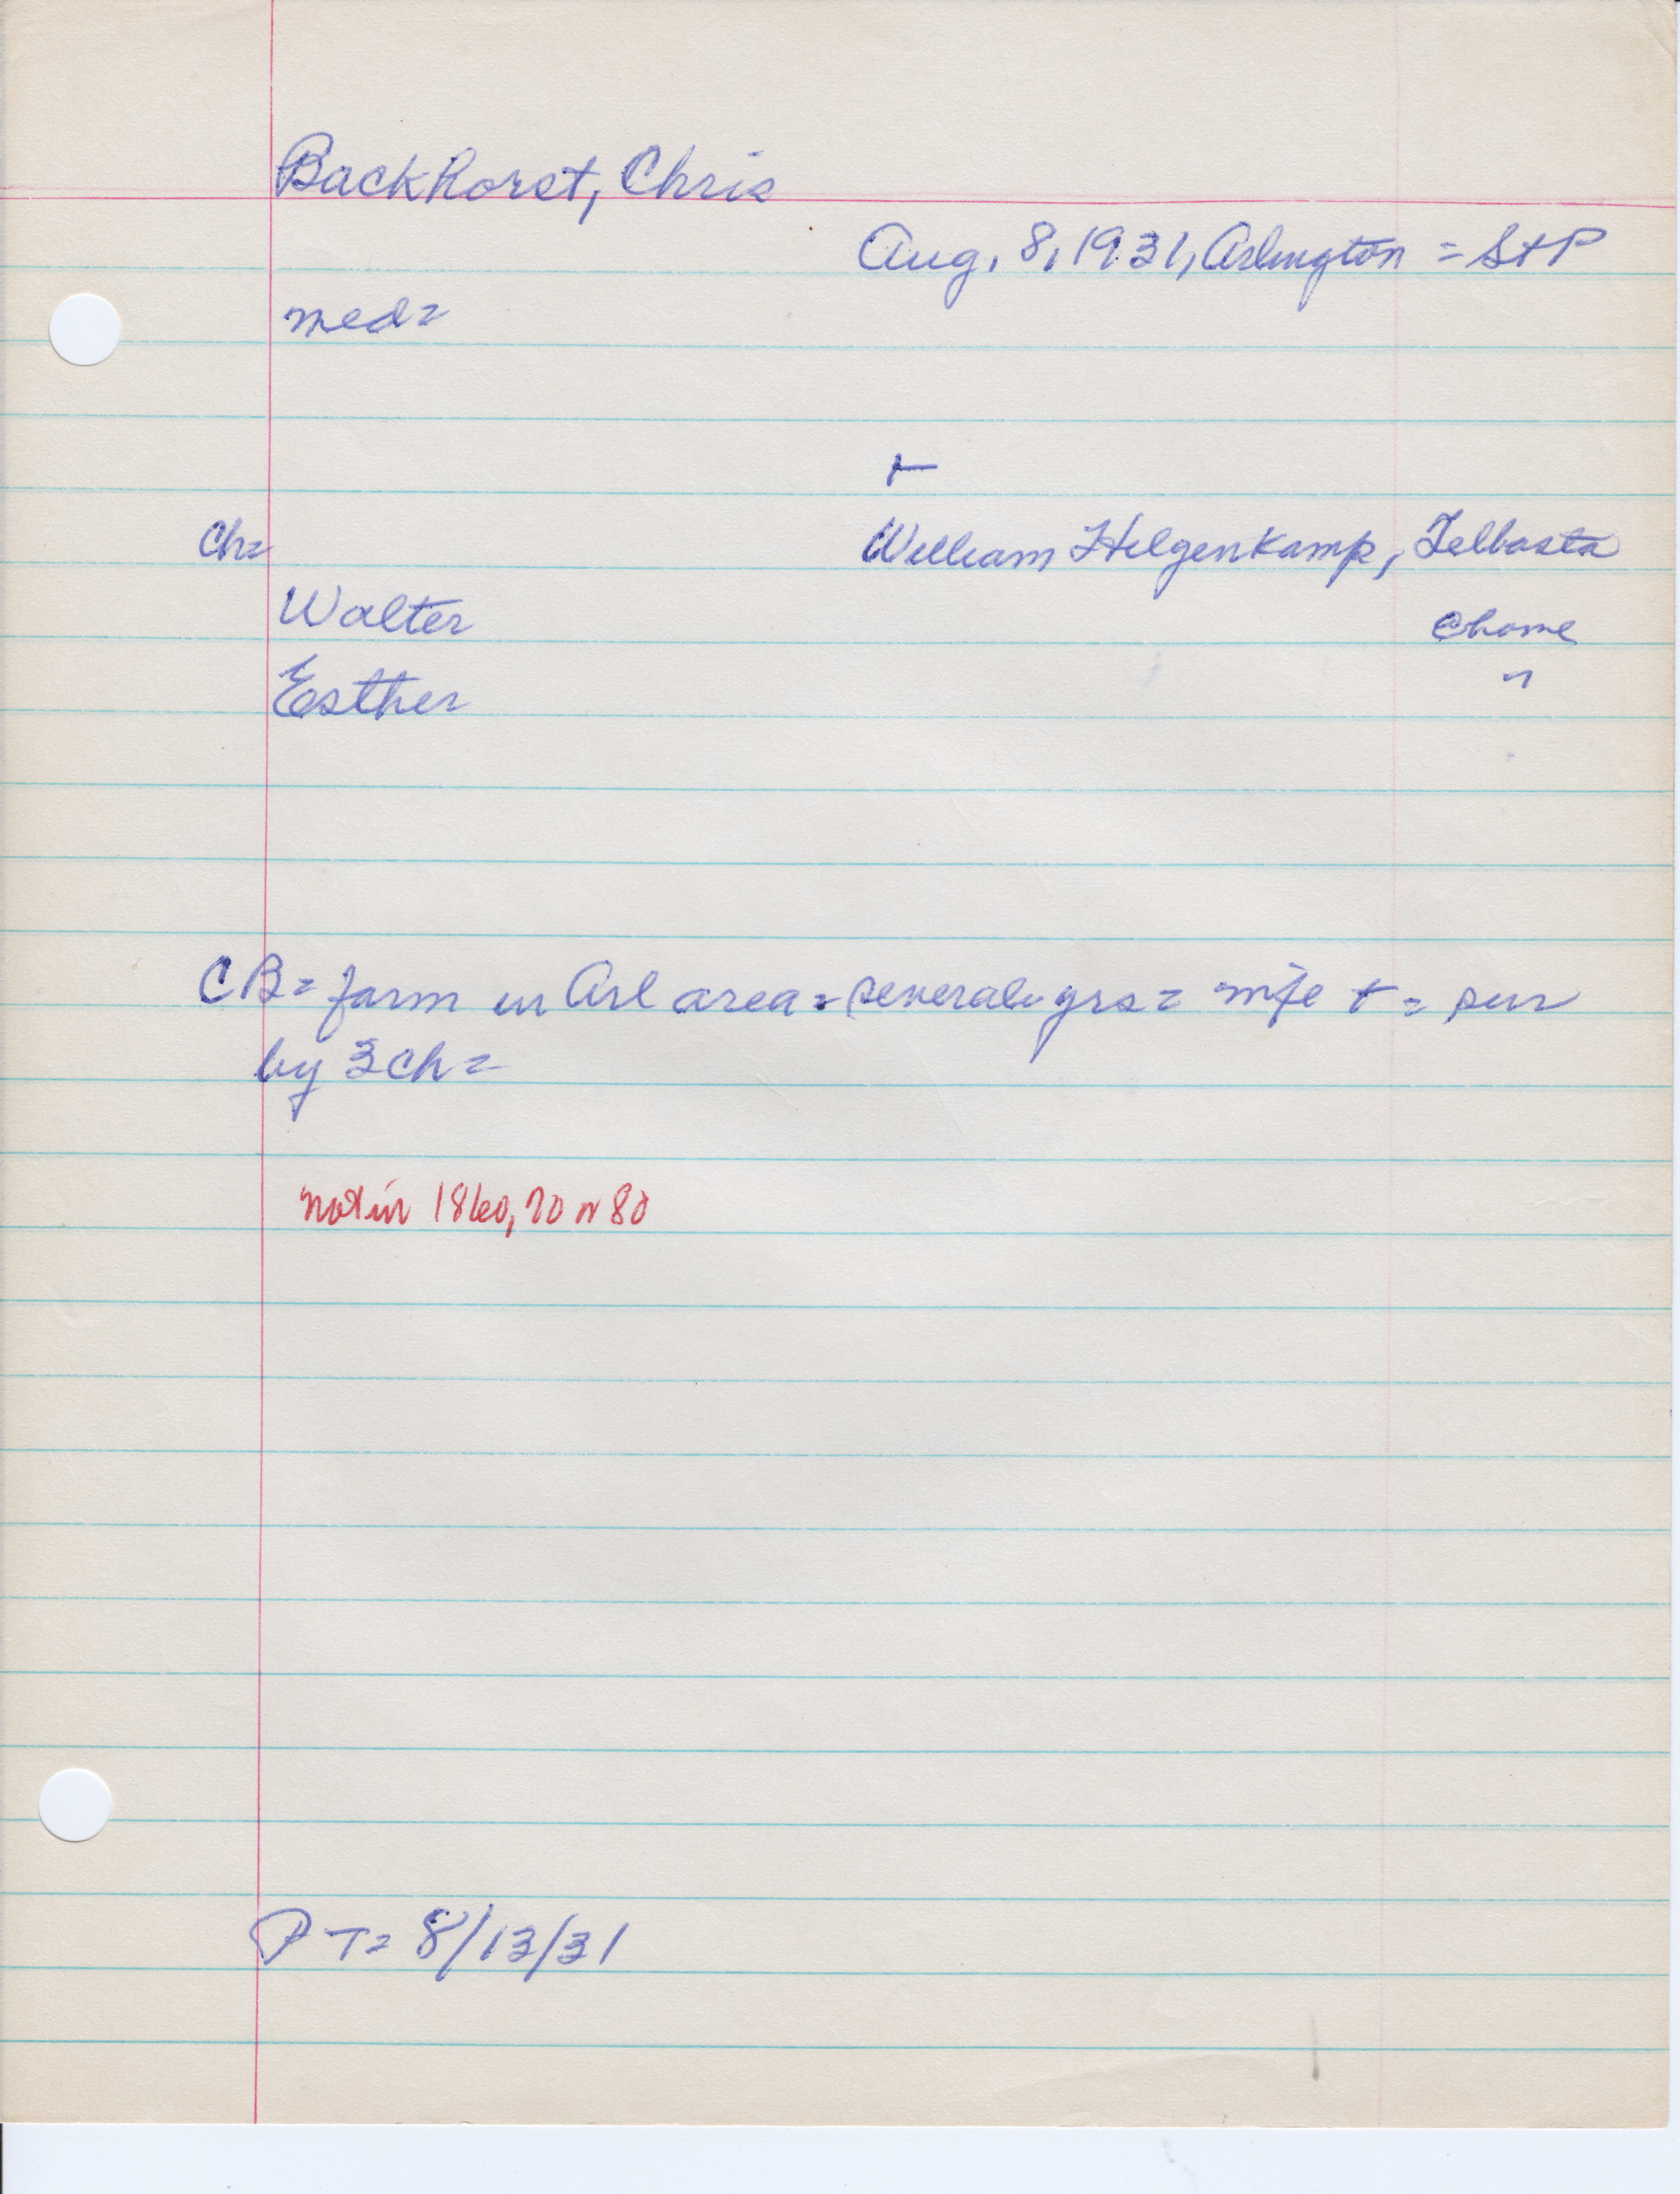 Backhorst, Chris
Aug. 8, 1931, Arlington = St P
med=
+
Ch= William Hilgenkamp, Telbasta
Walter @home
Esther "
CB= farm in Arl area = several yrs = wife + = sur
by 3 ch =
not in 1860, 70 or 80
PT= 8/13/31